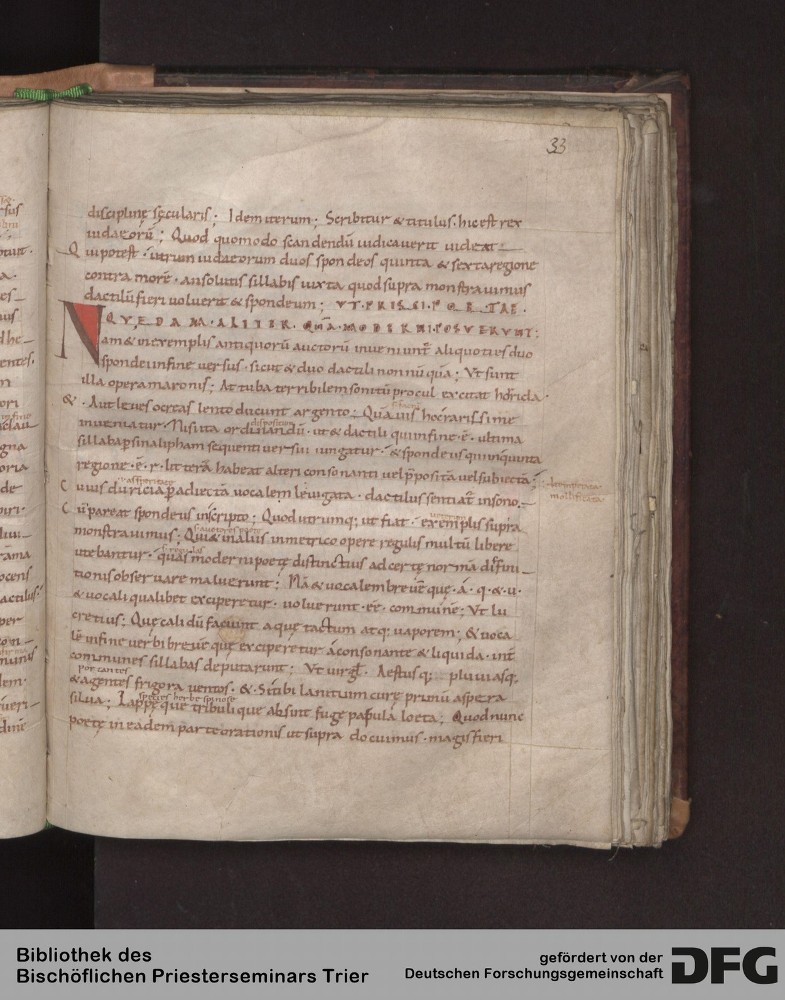 33
disciplinę sęcularis; Idem iterum; Scribitur & titulus. hic est rex
iudaeorū; Quod quomodo scandendū iudicaverit videat
Qui potest. utrum iudaeorum duos spondeos quinta & sexta regione
contra morē. an solutis sillabis iuxta quod supra monstravimus
dactilū fieri voluerit & spondeum; UT PRISCI POETAE
QUEDAM ALITER QUĀ MODERNI POSUERUNT:
Nam & in exemplis antiquorū auctorū inveniunt̄ aliquoties duo
spondei in fine versus. sicut & duo dactili non nū quā; Ut sunt
illa opera maronis; At tuba terribilem sonitū procul excitat horrida.
&. Aut leves ocreas lento ducunt argento; Quā vis hoc rarissime
inveniatur. Nisi ita ordinandū. ut & dactili qui in fine. ē. ultima
dispositum
sillaba p sinalipham sequenti versui iungatur. & spondeus qui in quinta
regione. ē. r. litterā habeat alteri consonanti vel p̄positā vel subiectā;
mollificata
cuius duricia p adiectā vocalem levigata. dactilus sentiat̄ in sono.
asperitas
cū pareat spondeus in scripto; Quod utrumq; ut fiat. exemplis supra
monstravimus; Qui & in aliis in metrico opere regulis multū libere
utebantur. quas moderni poetę distinctius ad certę normā diffini
tionis observare maluerunt; Nā & vocalem brevē que. a. q. & u.
& vocali qualibet exciperetur. voluerunt. ēē. communē; Ut lu
cretius; Quę calidū faciunt aquę tactum atq; vaporem; & voca
lē in fine verbi brevē quę exciperetur a consonante & liquida. int̄
communes sillabas deputarunt; Ut virgł. Aestusq; pluviasq;
potantes
& agentes frigora ventos. & Si tibi lanitium curę primū aspera
species herbę spinose
silva; Lappęque tribulique absint fuge pabula lęta; Quod nunc
poetę in eadem parte orationis ut supra docuimus. magis fieri
Bibliothek des
Bischöflichen Priesterseminars Trier
gefördert von der
Deutschen Forschungsgemeinschaft
DFG